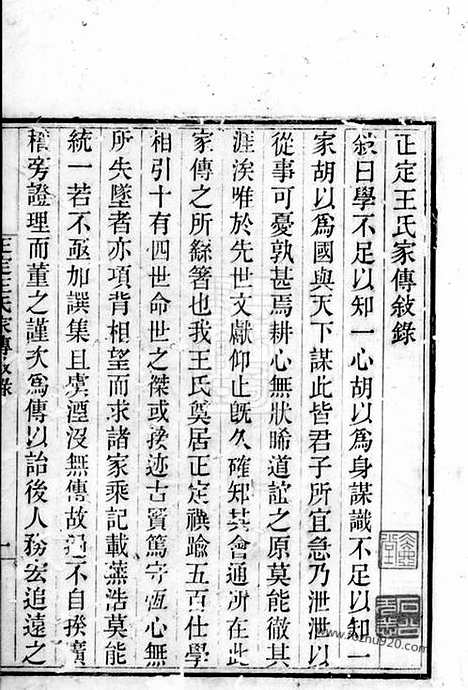 正定王氏家傳敘錄
敘曰學不足以知一心胡以為身謀識不足以知一
家胡以為國與天下謀此皆君子所宜急乃泄泄以
從事可憂孰甚焉耕心無狀晞道誼之原莫能徹其
涯涘唯於先世文獻仰止旣久確知其會通所在此
家傳之所繇箸也我王氏奠居正定禩踰五百仕學
相引十有四世命世之傑或揆迹古賢篤守恆心無
所失墜者亦項背相望而求諸家乘記載蕪浩莫能
統一若不亟加譔集且虞湮沒無傳故不自揆廣
稽旁證理而董之謹次為傳以詒後人務宏追遠之
正定王氏家傳敘錄
一
www.fozhu920.com